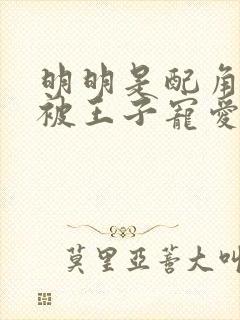 明明是配角
被王子寵愛
莫里亞蒼大叫